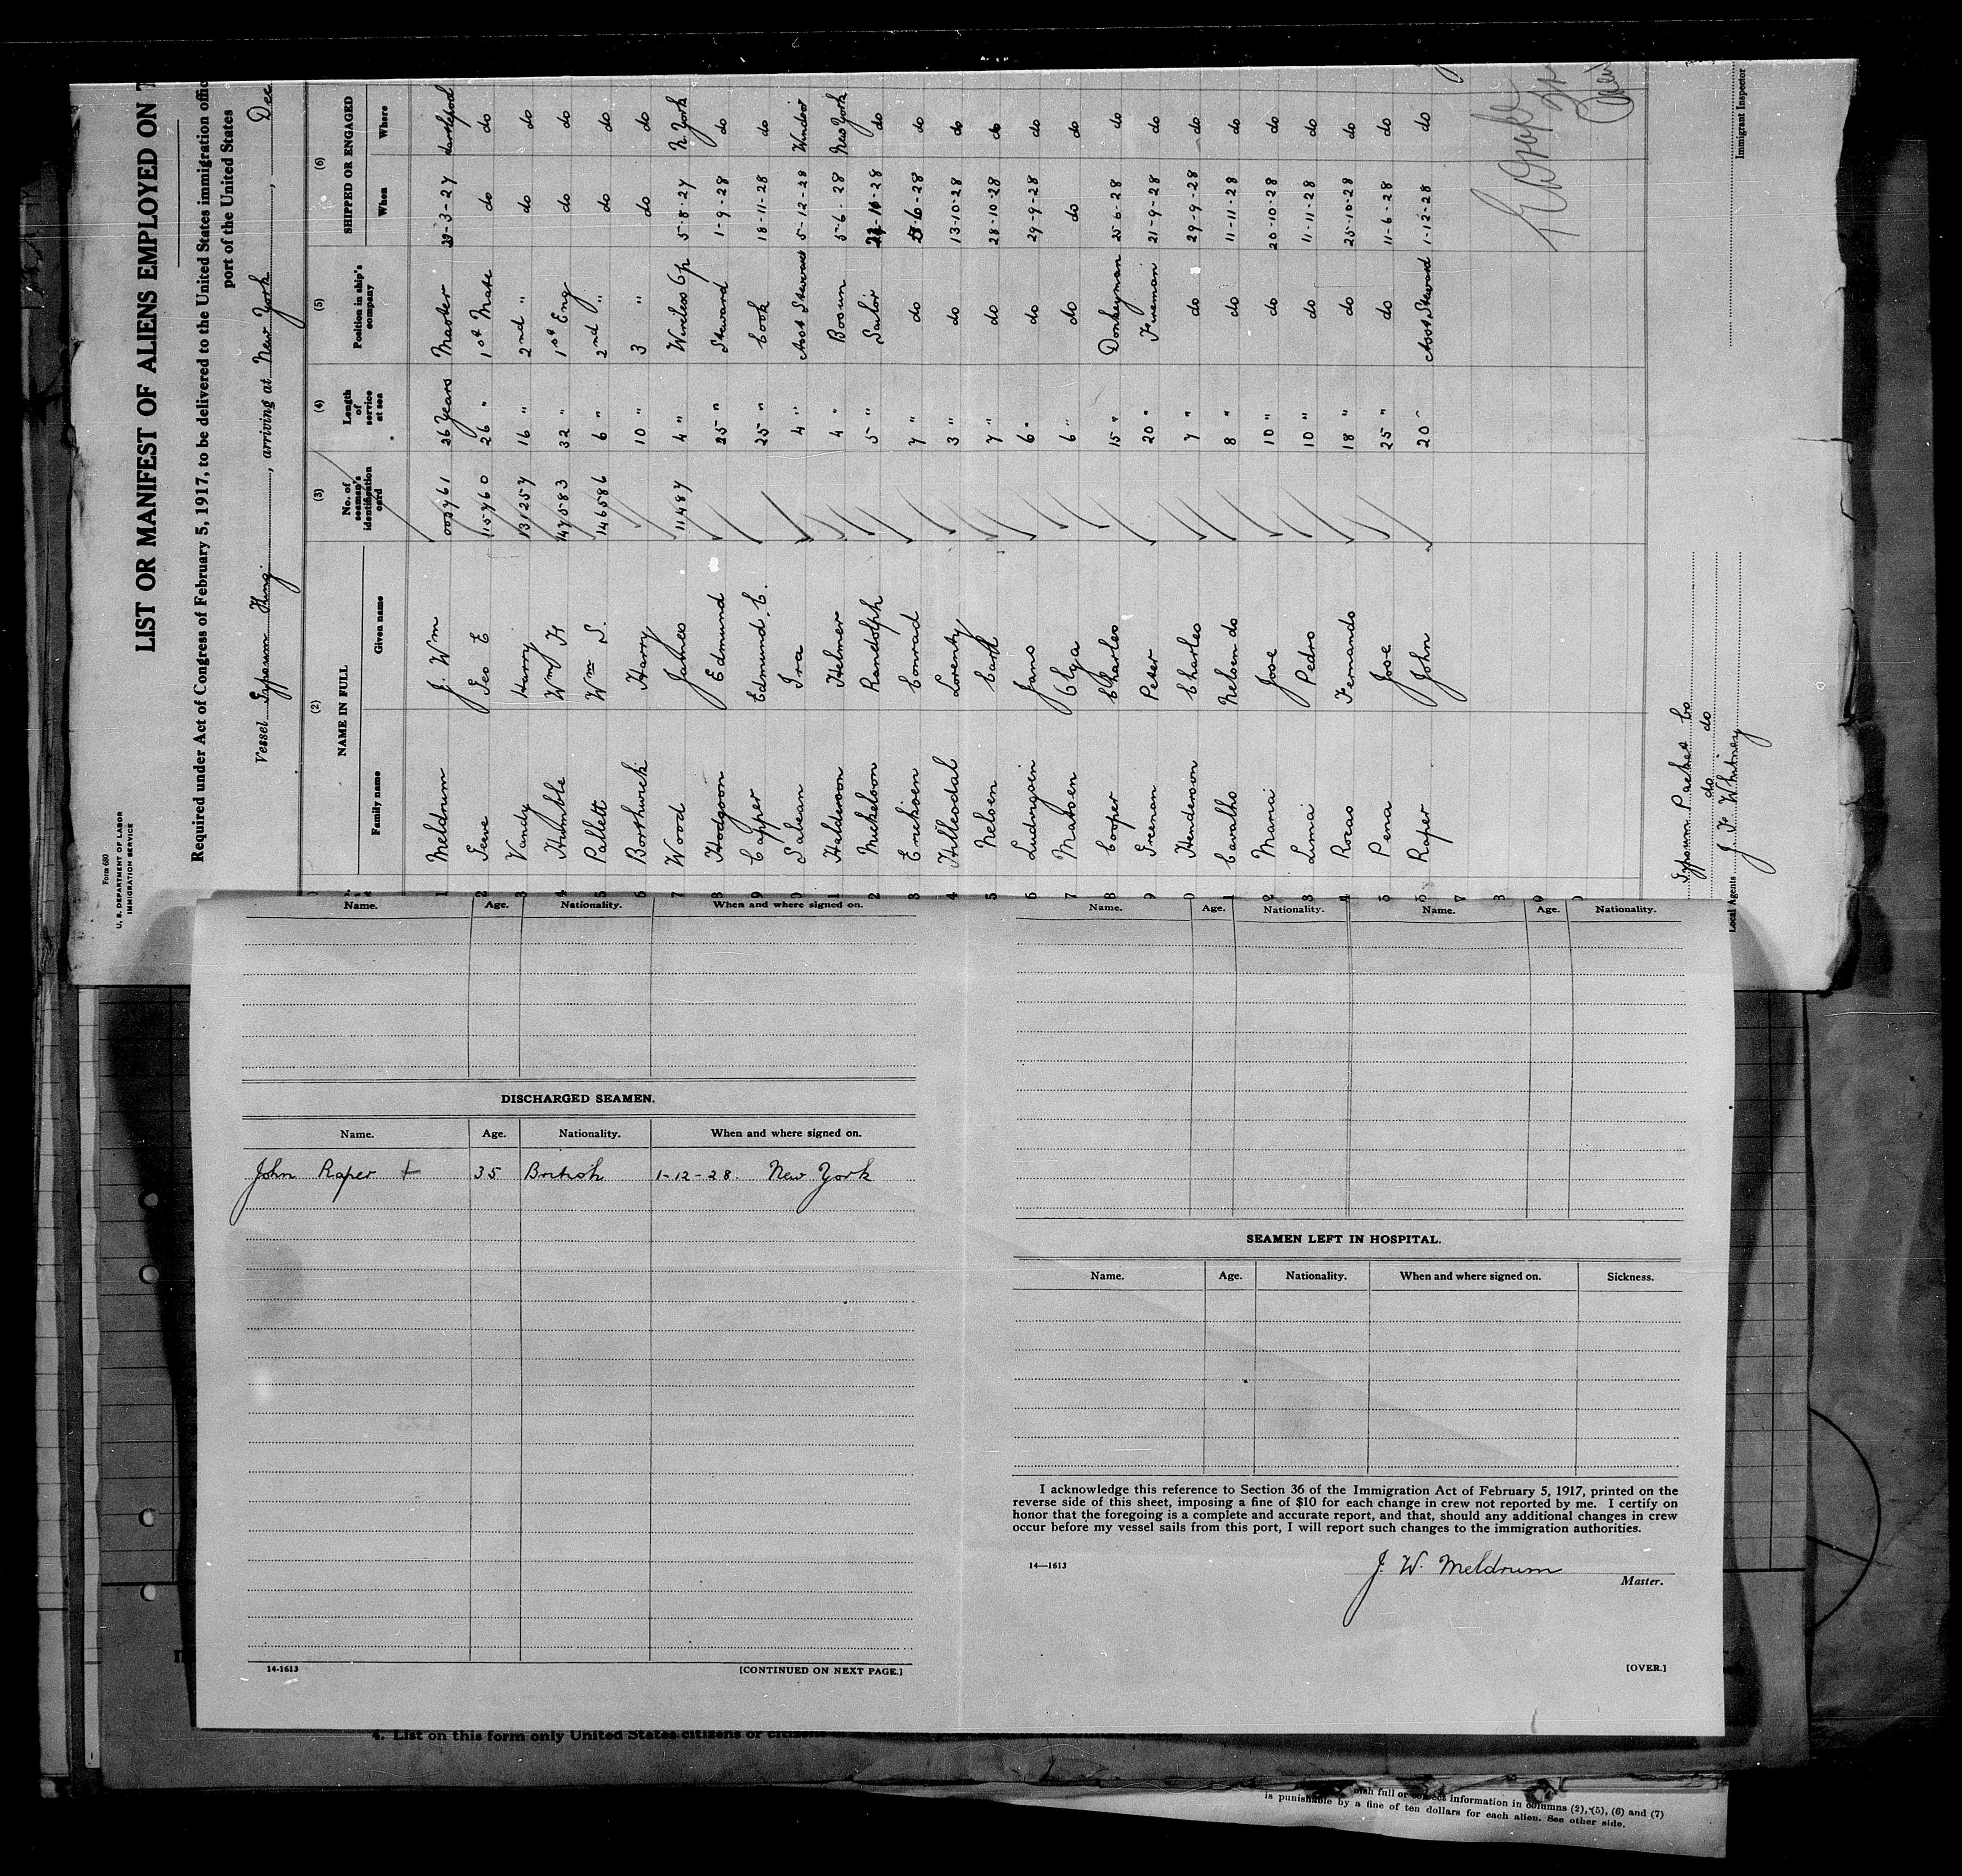 Form 680
U. S. DEPARTMENT OF LABOR
IMMIGRATION SERVICE
LIST OR MANIFEST OF ALIENS EMPLOYED ON T
Required under Act of Congress of February 5, 1917, to be delivered to the United States immigration offic
port of the United States
Vessel Gypsum King, arriving at New York, Dec
(2) (3) (4) (5) (6)
NAME IN FULL No. of seaman's identification card Length of service at sea Position in ship's company SHIPPED OR ENGAGED
Family name Given name When Where
1 Meldrum J. Wm 005761 26 years Master 29-3-27 Hartlepool
2 Geo E 115760 26 " 1st Mate do do
3 Vandy Harry 131257 16 " 2nd " do do
4 Humble Wm H 147583 32 " 1st Eng do do
5 Pallett Wm S. 146586 6 " 2nd " do do
6 Borthwick Harry 10 " 3 " do do
7 Wood James 11487 4 " Wireless Op 5-8-27 N. York
8 Hodgson Edmund 25 " Steward 1-9-28 do
9 Capper Edmund C. 25 " Cook 18-11-28 do
0 Salean Ira 4 " Asst Steward 5-12-28 Windsor
1 Halderson Helmer 4 " Bosun 5-6-28 New York
2 Mickelson Randolph 5 " Sailor -28 do
3 Ericksen Conrad 7 " do -6-28 do
4 Hilleodal Lorentz 3 " do 13-10-28 do
5 Nelsen Carl 7 " do 28-10-28 do
6 Ludvigsen Jans 6 " do 29-9-28 do
7 Madsen Olga 6 " do do do
8 Cooper Charles 15 " Donkeyman 25-6-28 do
9 Greenan Peter 20 " Fireman 21-9-28 do
0 Henderson Charles 7 " do 29-9-28 do
1 Cavalho Nelson do 8 " do 11-11-28 do
2 Manai Jose 10 " do 20-10-28 do
3 Lima Pedro 10 " do 11-11-28 do
4 Rocas Fernando 18 " do 25-10-28 do
5 Pena Jose 25 " do 11-6-28 do
6 Raper John 20 " Asst Steward 1-12-28 do
7
8
9
0
Gypsum Packet Co
do do
Local Agents J F Whitney
Immigrant Inspector
Name. Age. Nationality. When and where signed on.
DISCHARGED SEAMEN.
Name. Age. Nationality. When and where signed on.
John Raper + 35 British 1-12-28. New York
14-1613 [CONTINUED ON NEXT PAGE.]
Name. Age. Nationality. Name. Age. Nationality.
SEAMEN LEFT IN HOSPITAL.
Name. Age. Nationality. When and where signed on. Sickness.
I acknowledge this reference to Section 36 of the Immigration Act of February 5, 1917, printed on the
reverse side of this sheet, imposing a fine of $10 for each change in crew not reported by me. I certify on
honor that the foregoing is a complete and accurate report, and that, should any additional changes in crew
occur before my vessel sails from this port, I will report such changes to the immigration authorities.
J. W. Meldrum
14—1613 Master.
[OVER.]
4. List on this form only United States citizens or citizens
nish full or correct information in columns (2), (5), (6) and (7)
is punishable by a fine of ten dollars for each alien. See other side.